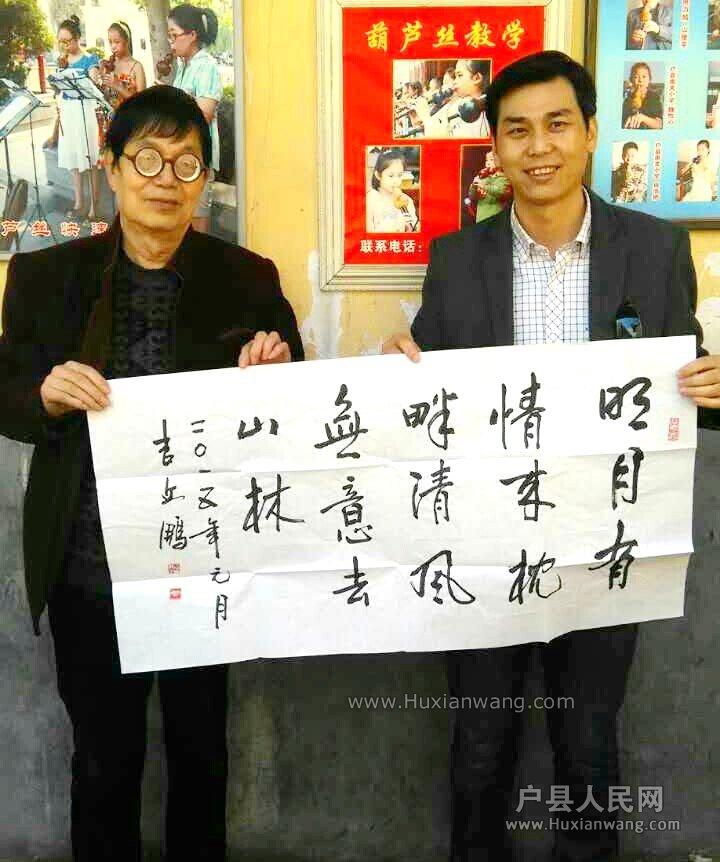 葫芦丝教学
联系电话:
芦丝快
明月有
情来枕
畔清风
无意去
山林
二〇一五年元月
www.Huxianwang.com
户县人民网
www.Huxianwang.com